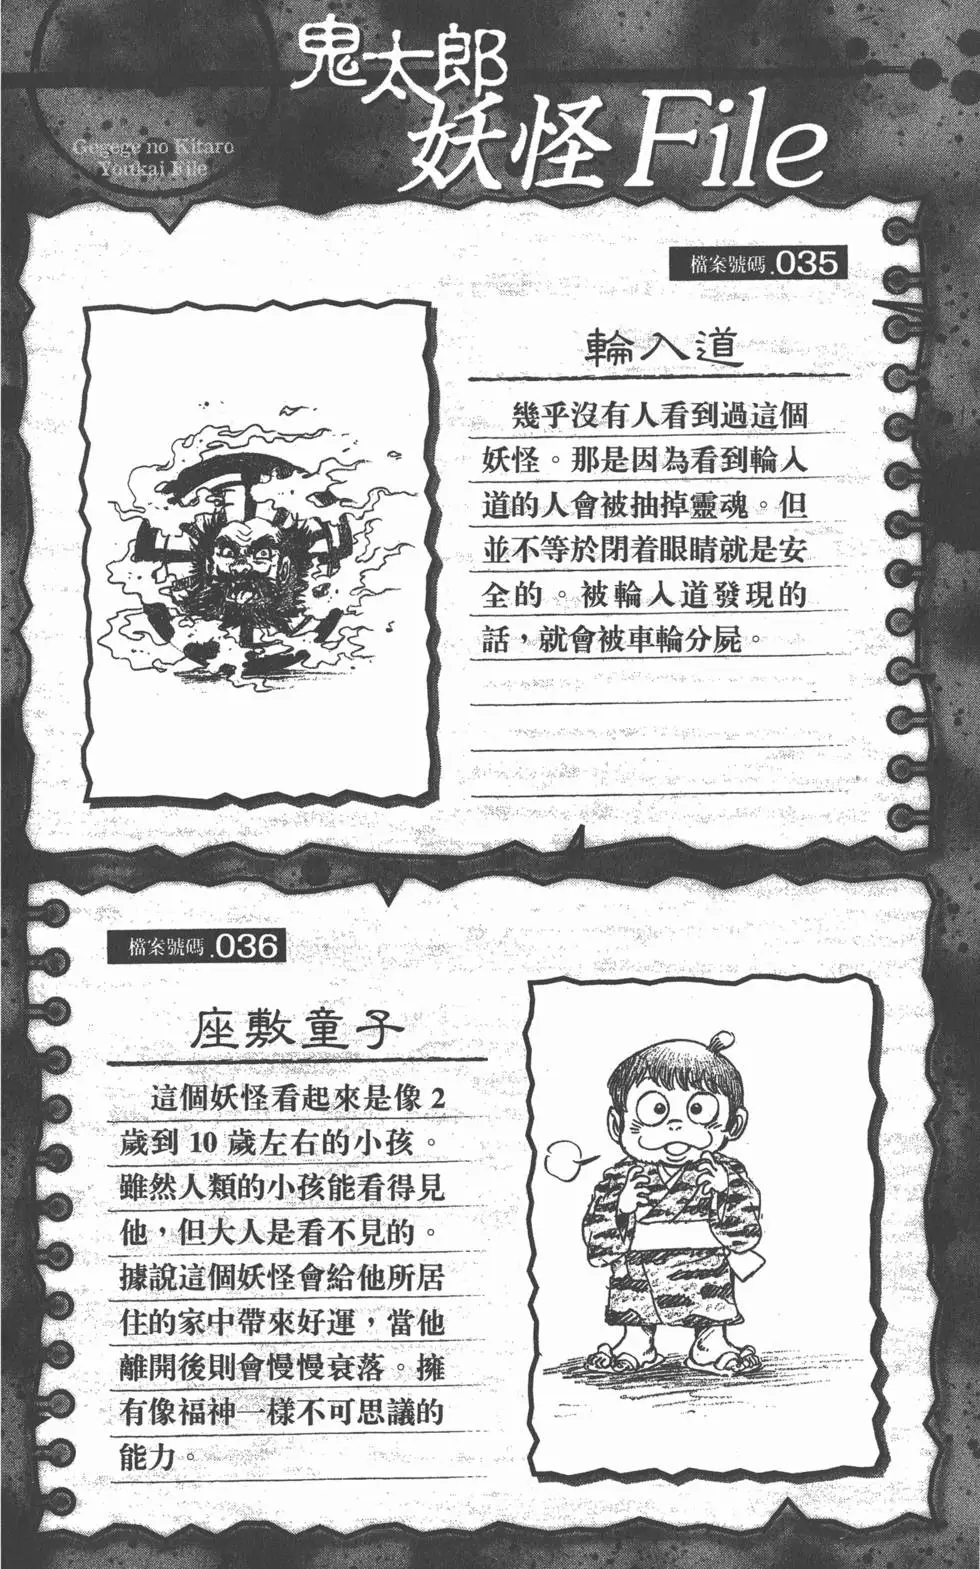 鬼太郎
妖怪File
Gegege no Kitaro
Youkai File
檔案號碼.035
輪入道
幾乎沒有人看到過這個
妖怪。那是因為看到輪入
道的人會被抽掉靈魂。但
並不等於閉着眼睛就是安
全的。被輪入道發現的
話，就會被車輪分屍。
檔案號碼.036
座敷童子
這個妖怪看起來是像2
歲到10歲左右的小孩。
雖然人類的小孩能看得見
他，但大人是看不見的。
據說這個妖怪會給他所居
住的家中帶來好運，當他
離開後則會慢慢衰落。擁
有像福神一樣不可思議的
能力。